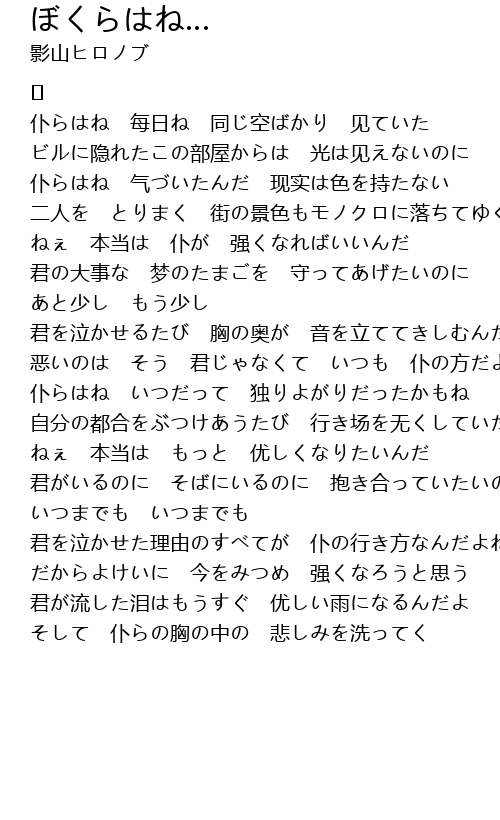 ぼくらはね...
影山ヒロノブ
仆らはね　每日ね　同じ空ばかり　见ていた
ビルに隐れたこの部屋からは　光は见えないのに
仆らはね　气づいたんだ　现实は色を持たない
二人を　とりまく　街の景色もモノクロに落ちてゆく
ねぇ　本当は　仆が　强くなればいいんだ
君の大事な　梦のたまごを　守ってあげたいのに
あと少し　もう少し
君を泣かせるたび　胸の奥が　音を立ててきしむんだ
恶いのは　そう　君じゃなくて　いつも　仆の方だよ
仆らはね　いつだって　独りよがりだったかもね
自分の都合をぶつけあうたび　行き场を无くしていた
ねぇ　本当は　もっと　优しくなりたいんだ
君がいるのに　そばにいるのに　抱き合っていたいの
いつまでも　いつまでも
君を泣かせた理由のすべてが　仆の行き方なんだよね
だからよけいに　今をみつめ　强くなろうと思う
君が流した泪はもうすぐ　优しい雨になるんだよ
そして　仆らの胸の中の　悲しみを洗ってく